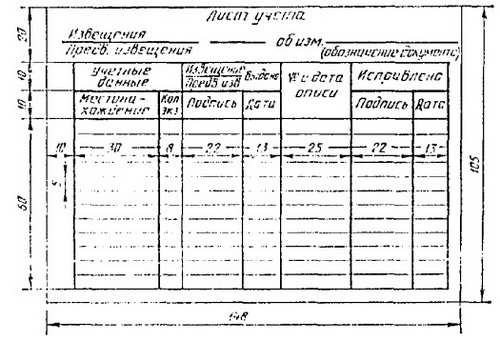 Лист учета
Извещения
Предв. извещения
об изм.
(обозначение документа)
Учетные данные
Извещение Предв изв
Выдано
№ и дата описи
Исправлено
Местона-хождение
Кол экз
Подпись
Дата
Подпись
Дата
20
10
10
60
10
30
8
22
13
25
22
13
5
105
148